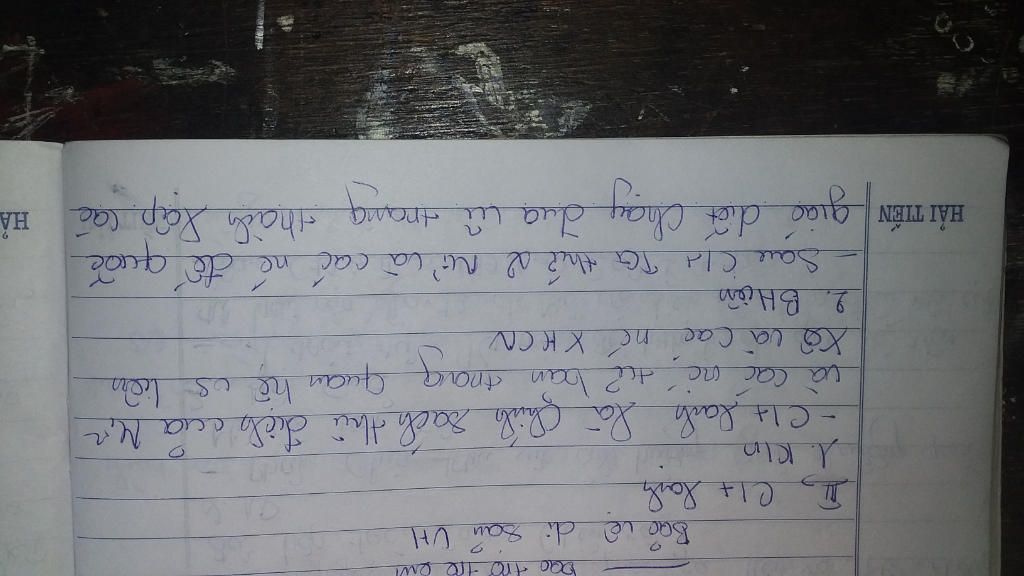 HẢI TIẾN
bảo trợ trẻ em
Bảo vệ di sản VH
III CT Lạnh
1. KN
- CT Lạnh là chính sách thù địch của Mĩ
và các nc tư bản trong quan hệ vs liên
Xô và các nc XHCN
2. BHiện
- Sau CT TG thứ 2 Mĩ và các nc đế quốc
giáo diết chạy đua vũ trang thành lập các
HẢ